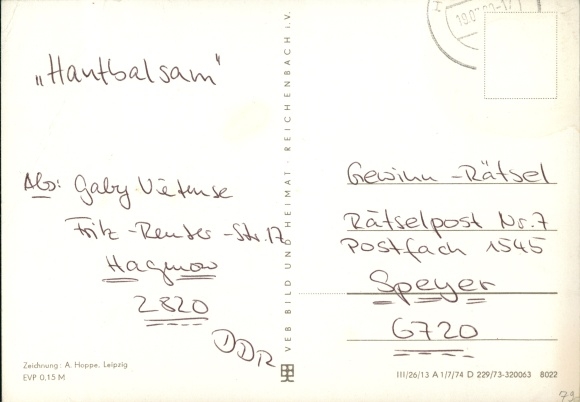 „Hautbalsam"
Abs: Gaby Vietense
Fritz-Reuter-Str. 17
Hagenow
2820
DDR
Zeichnung: A. Hoppe, Leipzig
EVP 0.15 M
VEB BILD UND HEIMAT · REICHENBACH i.V.
Gewinn-Rätsel
Rätselpost Nr. 7
Postfach 1545
Speyer
6720
III/26/13 A 1/7/74 D 229/73-320063 8022
79